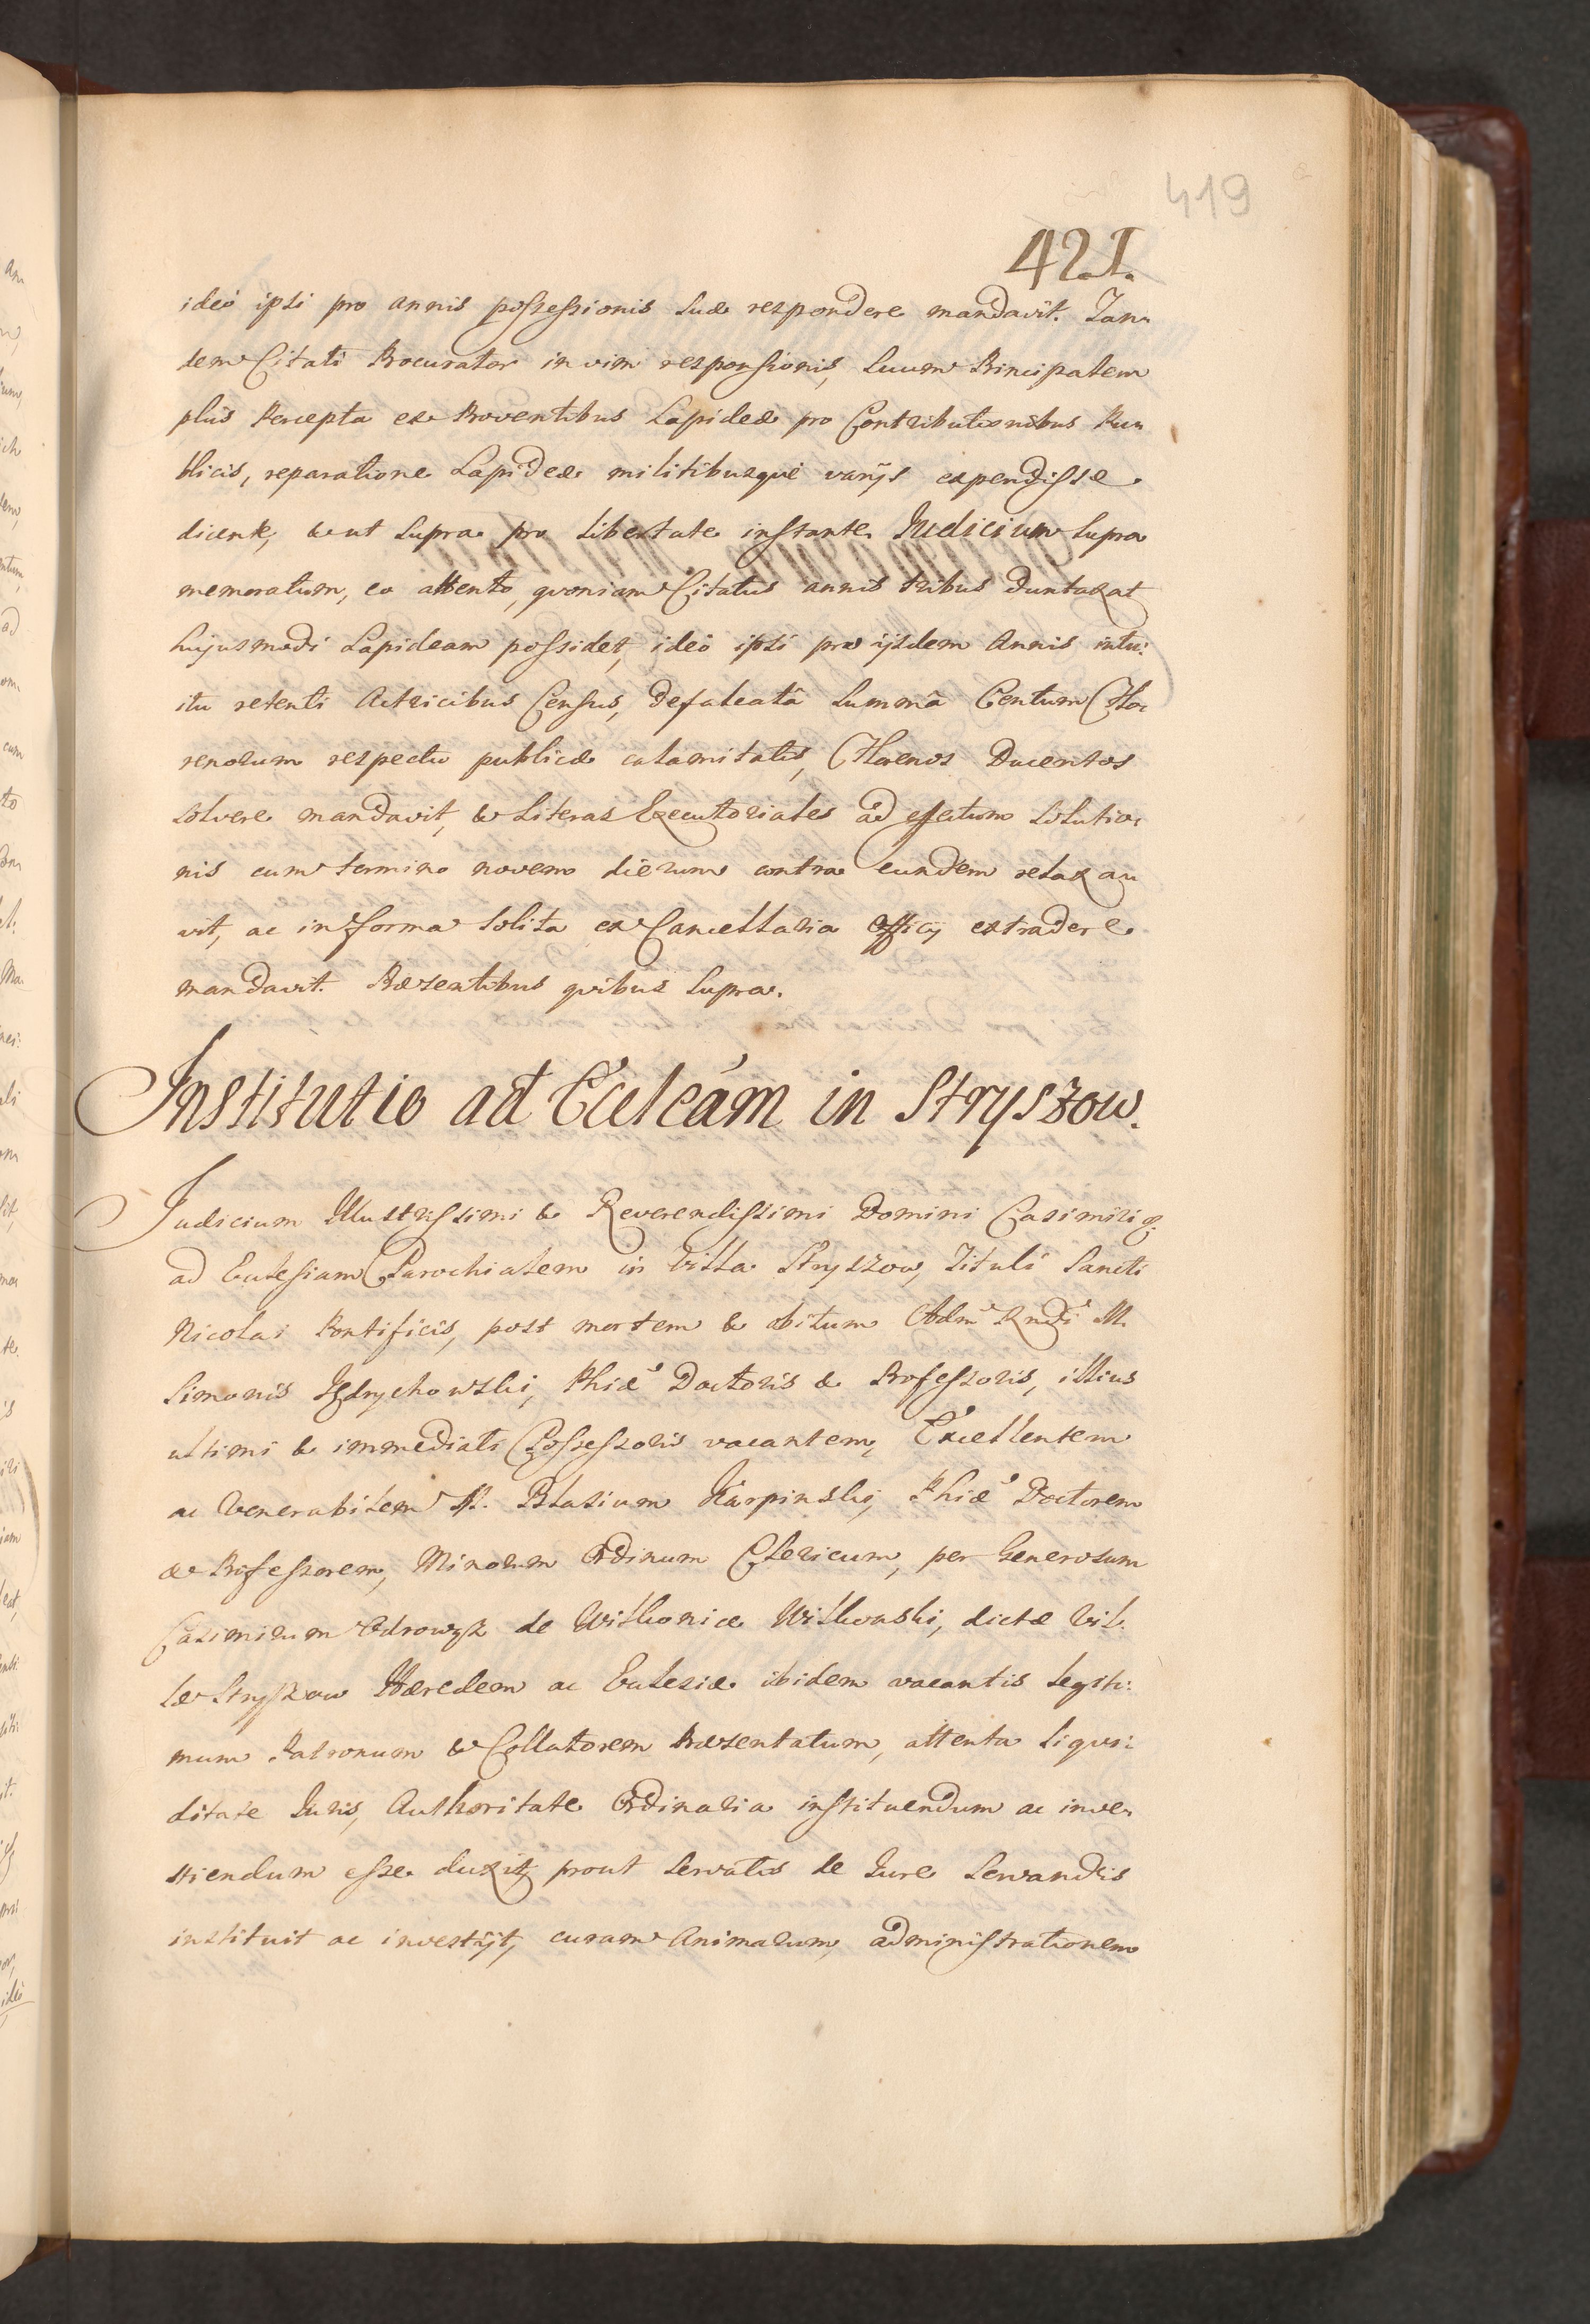 419
421.
ideò ipsi pro annis possessionis suæ respondere mandavit. Tan-
dem Citati Procurator in vim responsionis, suum Principalem
plus Percepta ex Proventibus Lapideæ pro Contributionibus Pu-
blicis, reparatione Lapideæ militibusquè varijs expendisse
dicente, & ut supra pro libertate instante, Judicium supra
memoratum, eo attento, quoniam Citatus annis tribus duntaxat
hujusmodi Lapideam possidet, ideò ipsi pro ijsdem Annis intu:
itu retenti Actricibus Census, defalcatâ summâ Centum Flo-
renorum respectu publicæ calamitatis, Florenos Ducentos
solvere mandavit, & Literas Executoriales ad effectum solutio-
nis cum termino novem dierum contra eundem relaxa-
vit, ac in forma solita ex Cancellaria Officij extradere
mandavit. Præsentibus quibus supra.
Institutio ad Eccleām in Stryszow.
Judicium Illustrissimi & Reverendissimi Domini Casimiri &.
ad Ecclesiam Parochialem in Villa Stryszow, Tituli Sancti
Nicolai Pontificis, post mortem & obitum Adm Rndi M.
Simonis Jędrychowski, Phiæ Doctoris & Professoris, illius
ultimi & immediati Possessoris vacantem, Excellentem
ac Venerabilem M. Blasium Karpinski, Phiæ Doctorem
& Professorem, Minorum Ordinum Clericum, per Generosum
Casimirum Odrowąz de Wilkonice Wilkonski, dictæ Vil-
læ Stryszow Hæredem ac Ecclesiæ ibidem vacantis legiti:
mum Patronum & Collatorem Præsentatum, attenta liqui:
ditate Juris, Authoritate Ordinaria instituendum ac inve-
stiendum esse duxit, prout servatis de Jure servandis
instituit ac investijt, curam Animarum, administrationem